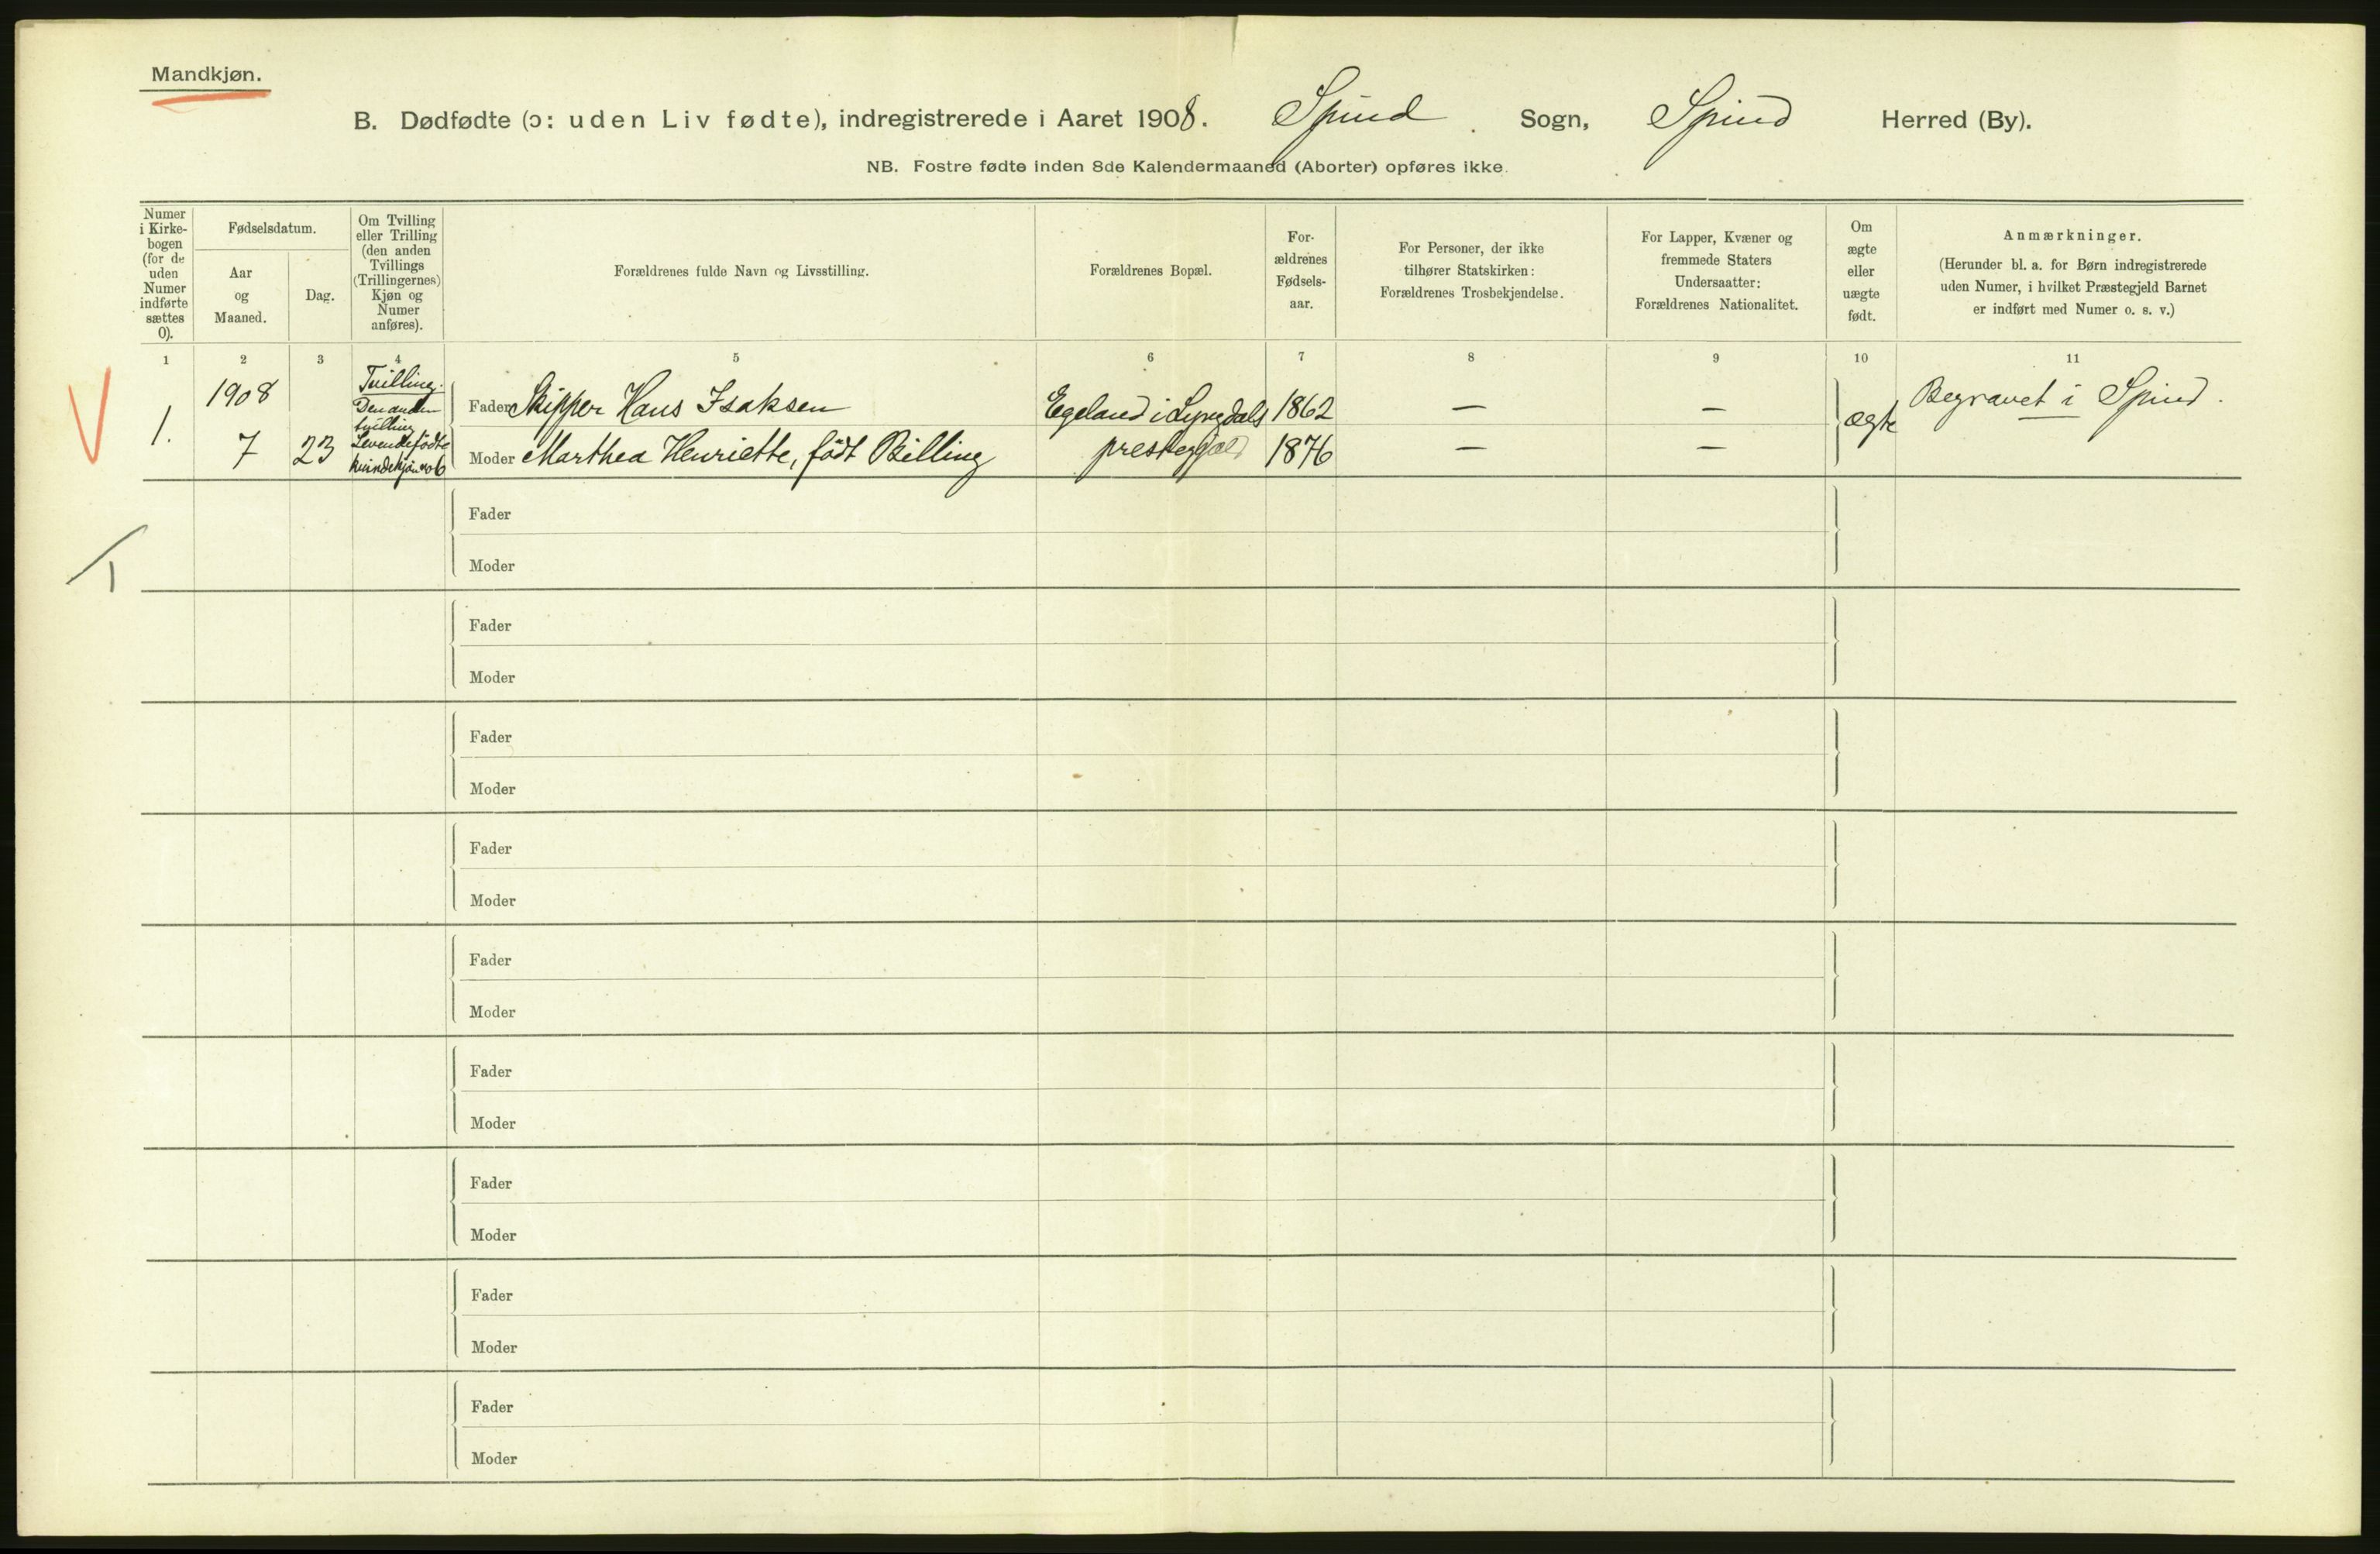 Mandkjøn.
B. Dødfødte (ɔ: uden Liv fødte), indregistrerede i Aaret 1908. Spind Sogn, Spind Herred (By).
NB. Fostre fødte inden 8de Kalendermaaned (Aborter) opføres ikke.
Numer i Kirke- bogen (for de uden Numer indførte sættes 0).
Fødselsdatum.
Aar og Maaned.
Dag.
Om Tvilling eller Trilling (den anden Tvillings (Trillingernes) Kjøn og Numer anføres).
Forældrenes fulde Navn og Livsstilling.
Forældrenes Bopæl.
For- ældrenes Fødsels- aar.
For Personer, der ikke tilhører Statskirken: Forældrenes Trosbekjendelse.
For Lapper, Kvæner og fremmede Staters Undersaatter: Forældrenes Nationalitet.
Om ægte eller uægte født.
Anmærkninger.
(Herunder bl. a. for Børn indregistrerede uden Numer, i hvilket Præstegjeld Barnet er indført med Numer o. s. v.)
1 2 3 4 5 6 7 8 9 10 11
1. 1908 7 23
Tvilling.
Den anden
tvilling
Levendefødte
kvindekjøn no 6
Fader Skipper Hans Isaksen Egeland i Lyngdals 1862 — —
Moder Marthea Henriette, født Billing prestegjæld 1876 — —
ægte
Begravet i Spind.
Fader
Moder
Fader
Moder
Fader
Moder
Fader
Moder
Fader
Moder
Fader
Moder
Fader
Moder
Fader
Moder
Fader
Moder